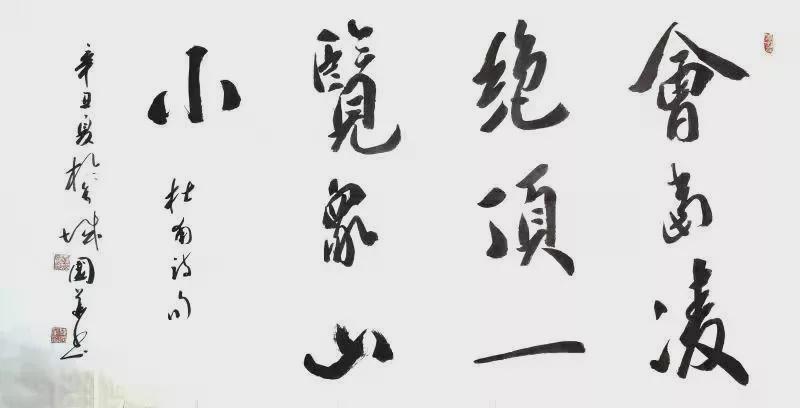 會當凌
絶頂一
覽衆山
小
杜甫詩句
辛丑夏於金城國華書